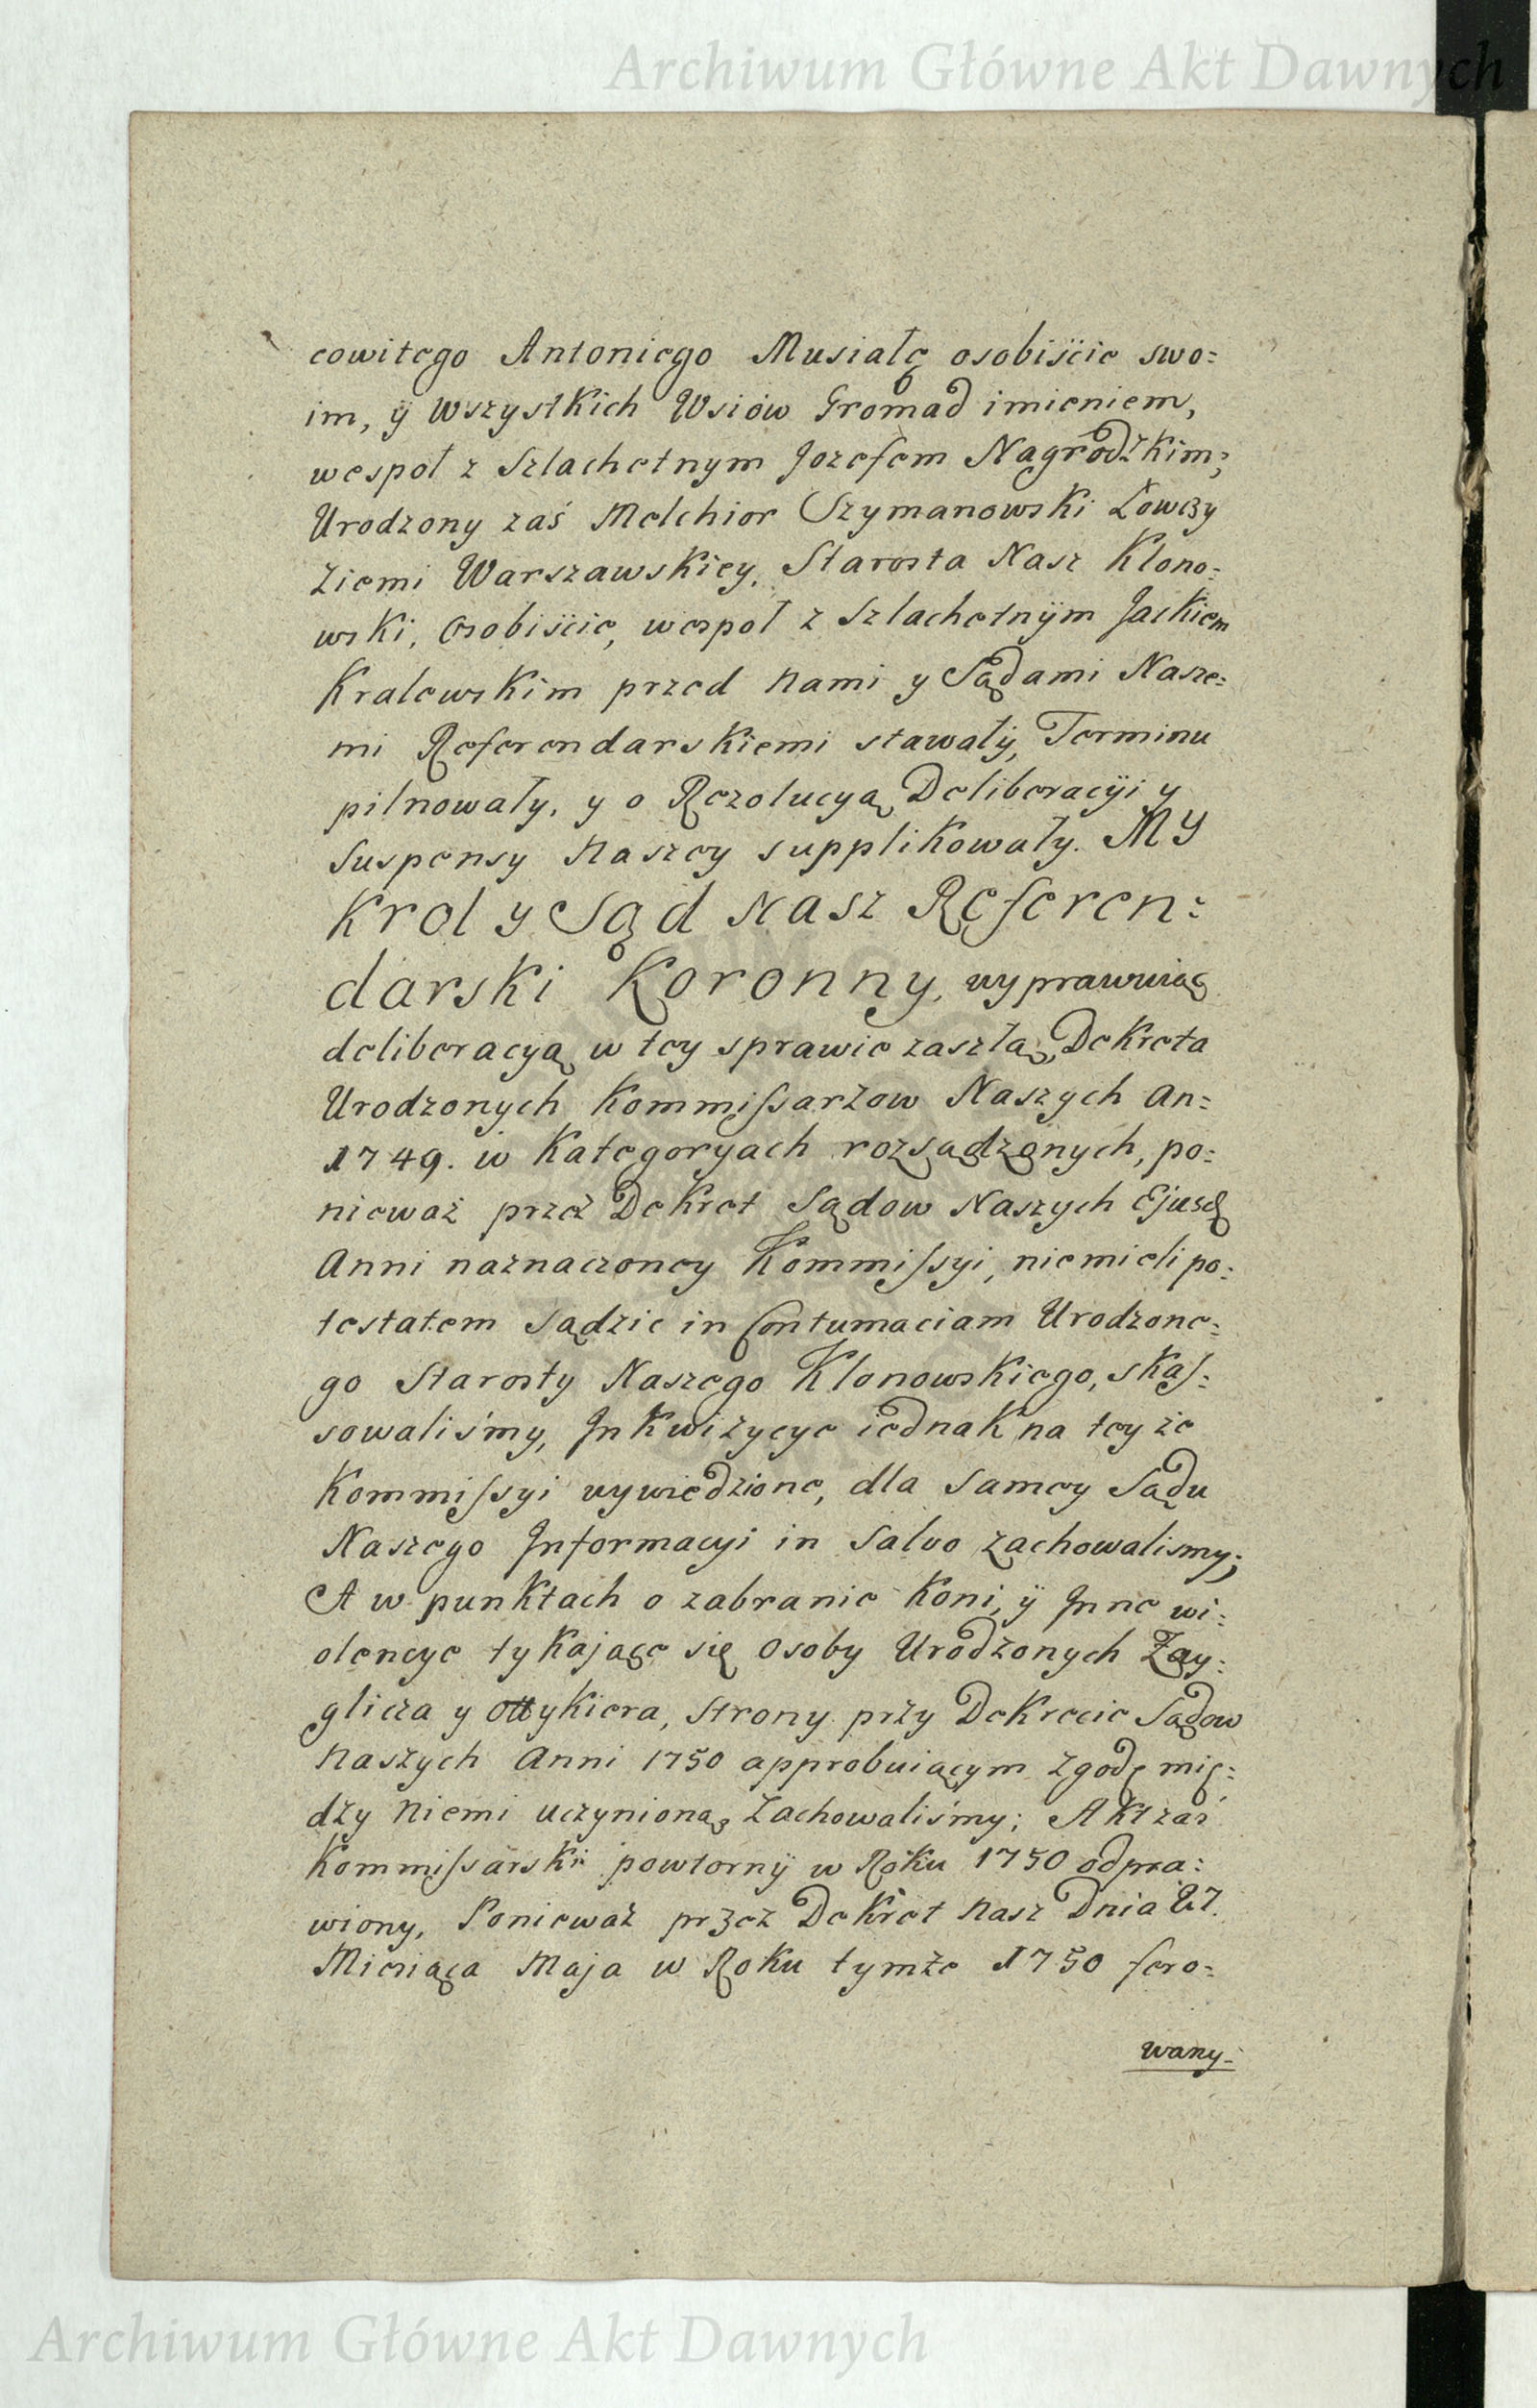 Archiwum Główne Akt Dawnych
cowitego Antoniego Musiałę osobiście swo:
im, ÿ wszystkich Wsiow Gromad imieniem,
wespoł z Szlachetnym Jozefem Nagrodzkim;
Urodzony zaś Melchior Szymanowski Łowczy
Ziemi Warszawskiey, Starosta Nasz Klono:
wski, osobiście, wespoł z Szlachetnÿm Jackiem
Kralewskim przed nami y Sądami Nasze:
mi Referendarskiemi stawałÿ, Terminu
pilnowały, y o Rezolucyą Deliberacÿi y
Suspensy naszey supplikowały. MY
Krol y Sąd Nasz Referen:
darski Koronny, wyprawuiąc
deliberacyą w tey sprawie zaszłą, Dekreta
Urodzonych Kommissarzow Naszych An:
1749. w Kategoryach rozsądzonych, po:
nieważ przez Dekret Sądow Naszych Ejusd
Anni naznaczoney Kommissyi, niemieli po:
testatem sądzic in Contumaciam Urodzone:
go Starosty Naszego Klonowskiego, skas:
sowaliśmy, Inkwizycye iednak na tey że
Kommissyi wywiedzione, dla samey Sądu
Naszego Informacyi in salvo zachowalismy;
A w punktach o zabranie Koni, ÿ Inne wi:
olencye tykające się osoby Urodzonych Zay:
glicza y Ottykiera, strony przy Dekrecie Sądow
naszych Anni 1750 approbuiącym zgodę mię:
dzy niemi uczynioną zachowaliśmy; Akt zaś
Kommissarski powtornÿ w Roku 1750 odpra:
wiony, Ponieważ przez Dekret nasz Dnia 27.
Miesiąca Maja w Roku tymże 1750 fero:
wany.
Archiwum Główne Akt Dawnych